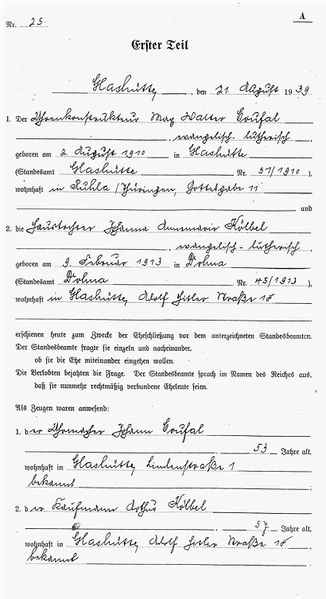 A
Nr. 25.
Erster Teil
Glashütte, den 21 August 1939
1. Der Uhrenkonstrukteur Max Walter Coufal
evangelisch-lutherisch
geboren am 2. August 1910 in Glashütte
(Standesamt Glashütte Nr. 51/1910).
wohnhaft in Ruhla/Thüringen, Gottesgabe 11
und
2. die Haustochter Johanna Annemarie Kölbel
evangelisch-lutherisch
geboren am 9. Februar 1913 in Dohna
(Standesamt Dohna Nr. 45/1913).
wohnhaft in Glashütte, Adolf Hitler Straße 18
erschienen heute zum Zwecke der Eheschließung vor dem unterzeichneten Standesbeamten.
Der Standesbeamte fragte sie einzeln und nacheinander,
ob sie die Ehe miteinander eingehen wollen.
Die Verlobten bejahten die Frage. Der Standesbeamte sprach im Namen des Reiches aus,
daß sie nunmehr rechtmäßig verbundene Eheleute seien.
Als Zeugen waren anwesend:
1. der Uhrmacher Johann Coufal
53 Jahre alt,
wohnhaft in Glashütte, Lindenstraße 1
bekannt
2. der Kaufmann Arthur Kölbel
57 Jahre alt,
wohnhaft in Glashütte, Adolf Hitler Straße 18
bekannt